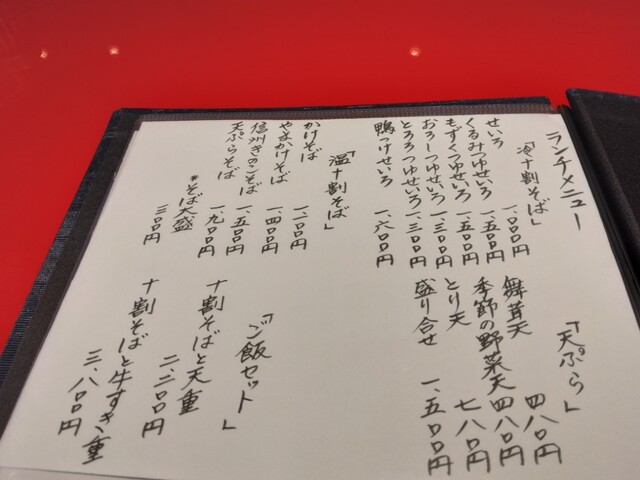 ランチメニュー
「冷十割そば」
せいろ 一、〇〇〇円
くるみつゆせいろ 一、五〇〇円
もずくつゆせいろ 一、五〇〇円
おろしつゆせいろ 一、三〇〇円
とろろつゆせいろ 一、三〇〇円
鴨つけせいろ 一、六〇〇円
「温十割そば」
かけそば 一、一〇〇円
やまかけそば 一、四〇〇円
信州きのこそば 一、五〇〇円
天ぷらそば 一、九〇〇円
*そば大盛 三〇〇円
「天ぷら」
舞茸天 四八〇円
季節の野菜天 四八〇円
とり天 七八〇円
盛り合せ 一、五〇〇円
「ご飯セット」
十割そばと天重 二、二〇〇円
十割そばと牛すき重 三、八〇〇円